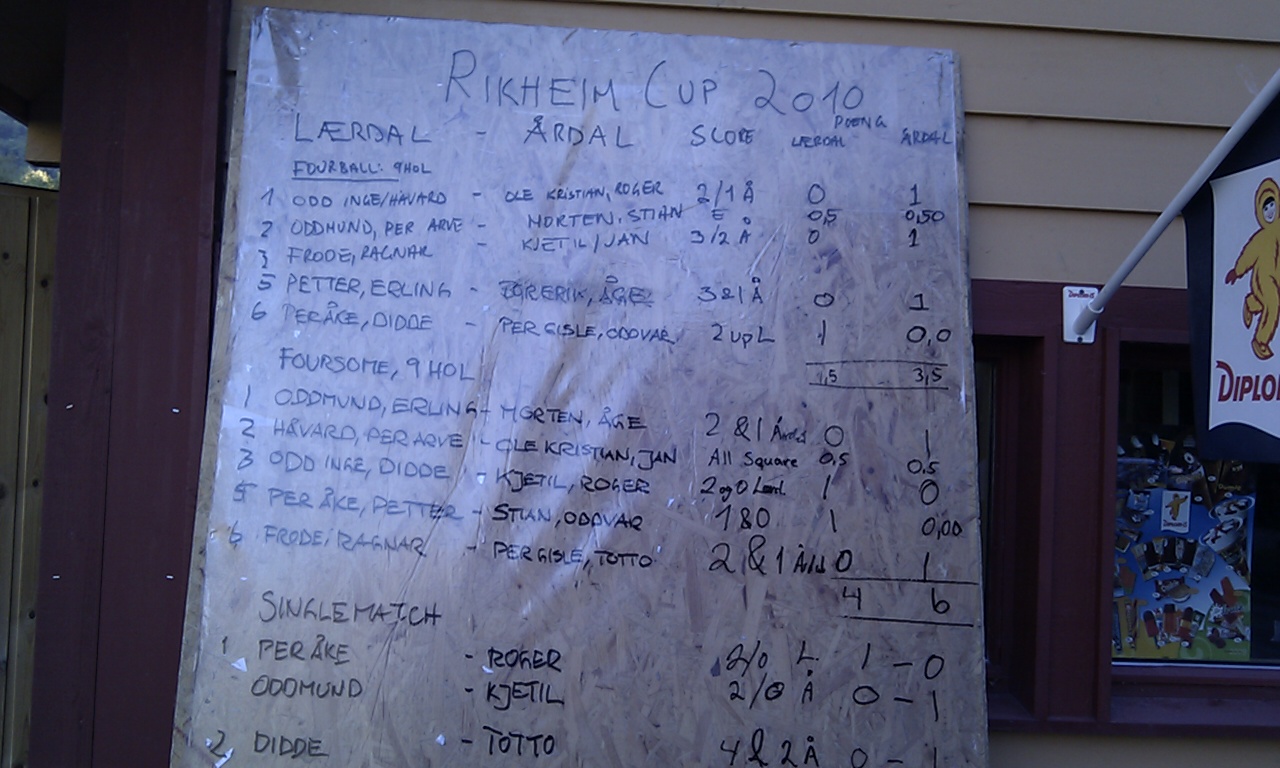 RIKHEIM CUP 2010
LÆRDAL - ÅRDAL SCORE POENG LÆRDAL ÅRDAL
FOURBALL: 9HOL
1 ODD INGE/HÅVARD - OLE KRISTIAN, ROGER 2/1 Å 0 1
2 ODDMUND, PER ARVE - MORTEN, STIAN E 0,5 0,50
3 FRODE, RAGNAR - KJETIL/JAN 3/2 Å 0 1
5 PETTER, ERLING - ÅGE 3&1 Å 0 1
6 PER ÅKE, DIDDE - PER GISLE, ODDVAR 2 up L 1 0,0
1,5 3,5
FOURSOME, 9 HOL
1 ODDMUND, ERLING - MORTEN, ÅGE 2 & 1 Årdal 0 1
2 HÅVARD, PER ARVE - OLE KRISTIAN, JAN All Square 0,5 0,5
3 ODD INGE, DIDDE - KJETIL, ROGER 2 og 0 Lærd 1 0
5 PER ÅKE, PETTER - STIAN, ODDVAR 1&0 1 0,00
6 FRODE, RAGNAR - PER GISLE, TOTTO 2 & 1 Årdal 0 1
4 6
SINGLEMATCH
1 PER ÅKE - ROGER 2/0 L 1 - 0
ODDMUND - KJETIL 2/0 Å 0 - 1
2 DIDDE - TOTTO 4 & 2 Å 0 - 1
DIPLO